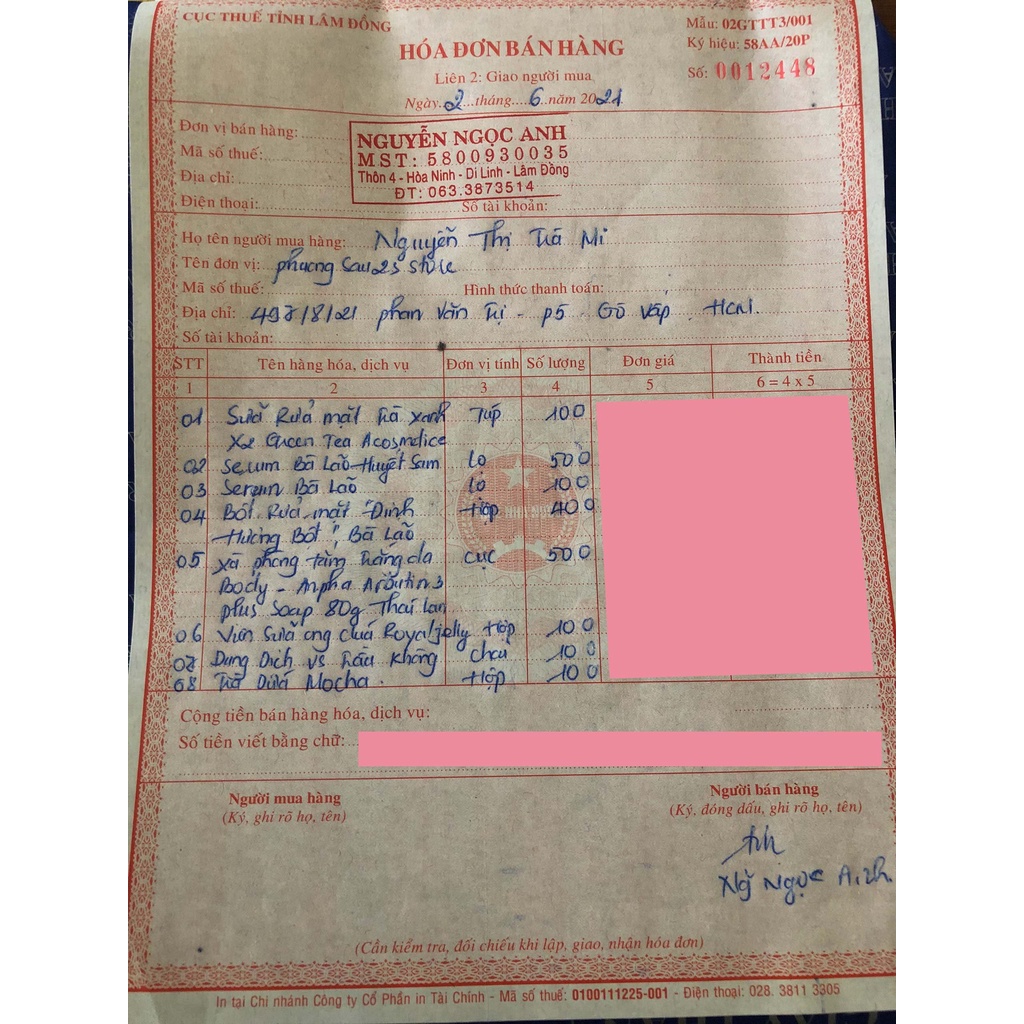 CỤC THUẾ TỈNH LÂM ĐỒNG
Mẫu: 02GTTT3/001
HÓA ĐƠN BÁN HÀNG
Ký hiệu: 58AA/20P
Liên 2: Giao người mua
Số: 0012448
Ngày 2 tháng 6 năm 2021
Đơn vị bán hàng:
Mã số thuế:
Địa chỉ:
Điện thoại:
Số tài khoản:
NGUYỄN NGỌC ANH
MST: 5800930035
Thôn 4 - Hòa Ninh - Di Linh - Lâm Đồng
ĐT: 063.3873514
Họ tên người mua hàng: Nguyễn Thị Trà Mi
Tên đơn vị: phuong Sau25 store
Mã số thuế: Hình thức thanh toán:
Địa chỉ: 497/8/21 phan Văn Trị - p5 - Gò Vấp. HCM.
Số tài khoản:
STT Tên hàng hóa, dịch vụ Đơn vị tính Số lượng Đơn giá Thành tiền
1 2 3 4 5 6 = 4 x 5
01 Sữa Rửa mặt Trà xanh Túp 100
Green Tea Acosmetics
02 Serum Bà Lão Huyết Sâm lọ 500
03 Serum Bà Lão lọ 100
04 Bột Rửa mặt "Đinh Hộp 400
Hương Bột" Bà Lão
05 Xà phòng tắm trắng da cục 500
Body - Anpha Arbutin 3
plus Soap 80g Thai lan
06 Viên Sữa ong chúa Royal jelly Hộp 100
07 Dung Dịch vs Trầu Không chai 100
08 Trà Dứa Mocha. Hộp 100
Cộng tiền bán hàng hóa, dịch vụ:
Số tiền viết bằng chữ:
Người mua hàng
(Ký, ghi rõ họ, tên)
Người bán hàng
(Ký, đóng dấu, ghi rõ họ, tên)
Ng Ngọc Anh.
(Cần kiểm tra, đối chiếu khi lập, giao, nhận hóa đơn)
In tại Chi nhánh Công ty Cổ Phần in Tài Chính - Mã số thuế: 0100111225-001 - Điện thoại: 028. 3811 3305